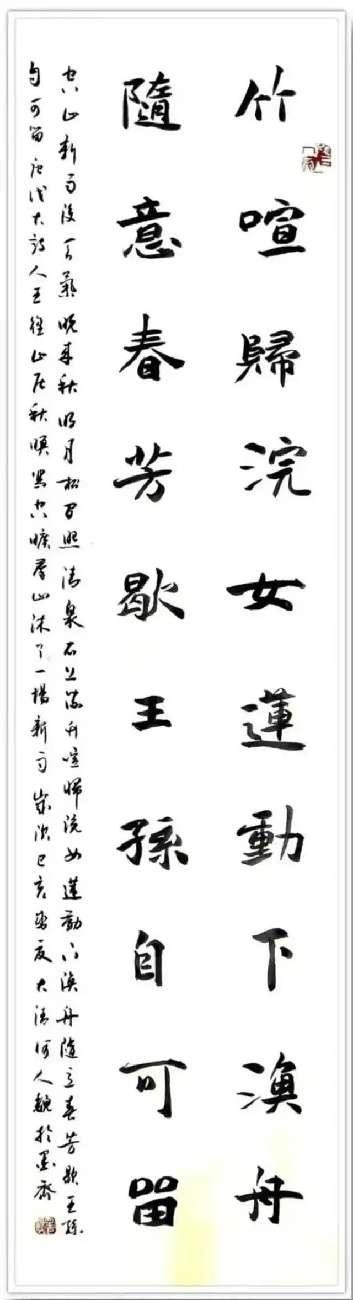 竹喧歸浣女蓮動下漁舟
隨意春芳歇王孫自可留
空山新雨後天氣晚來秋明月松間照清泉石上流竹喧歸浣女蓮動下漁舟隨意春芳歇王孫
自可留唐代大詩人王維山居秋暝空曠群山沐了一場新雨歲次己亥夏大清河人魏於墨齋